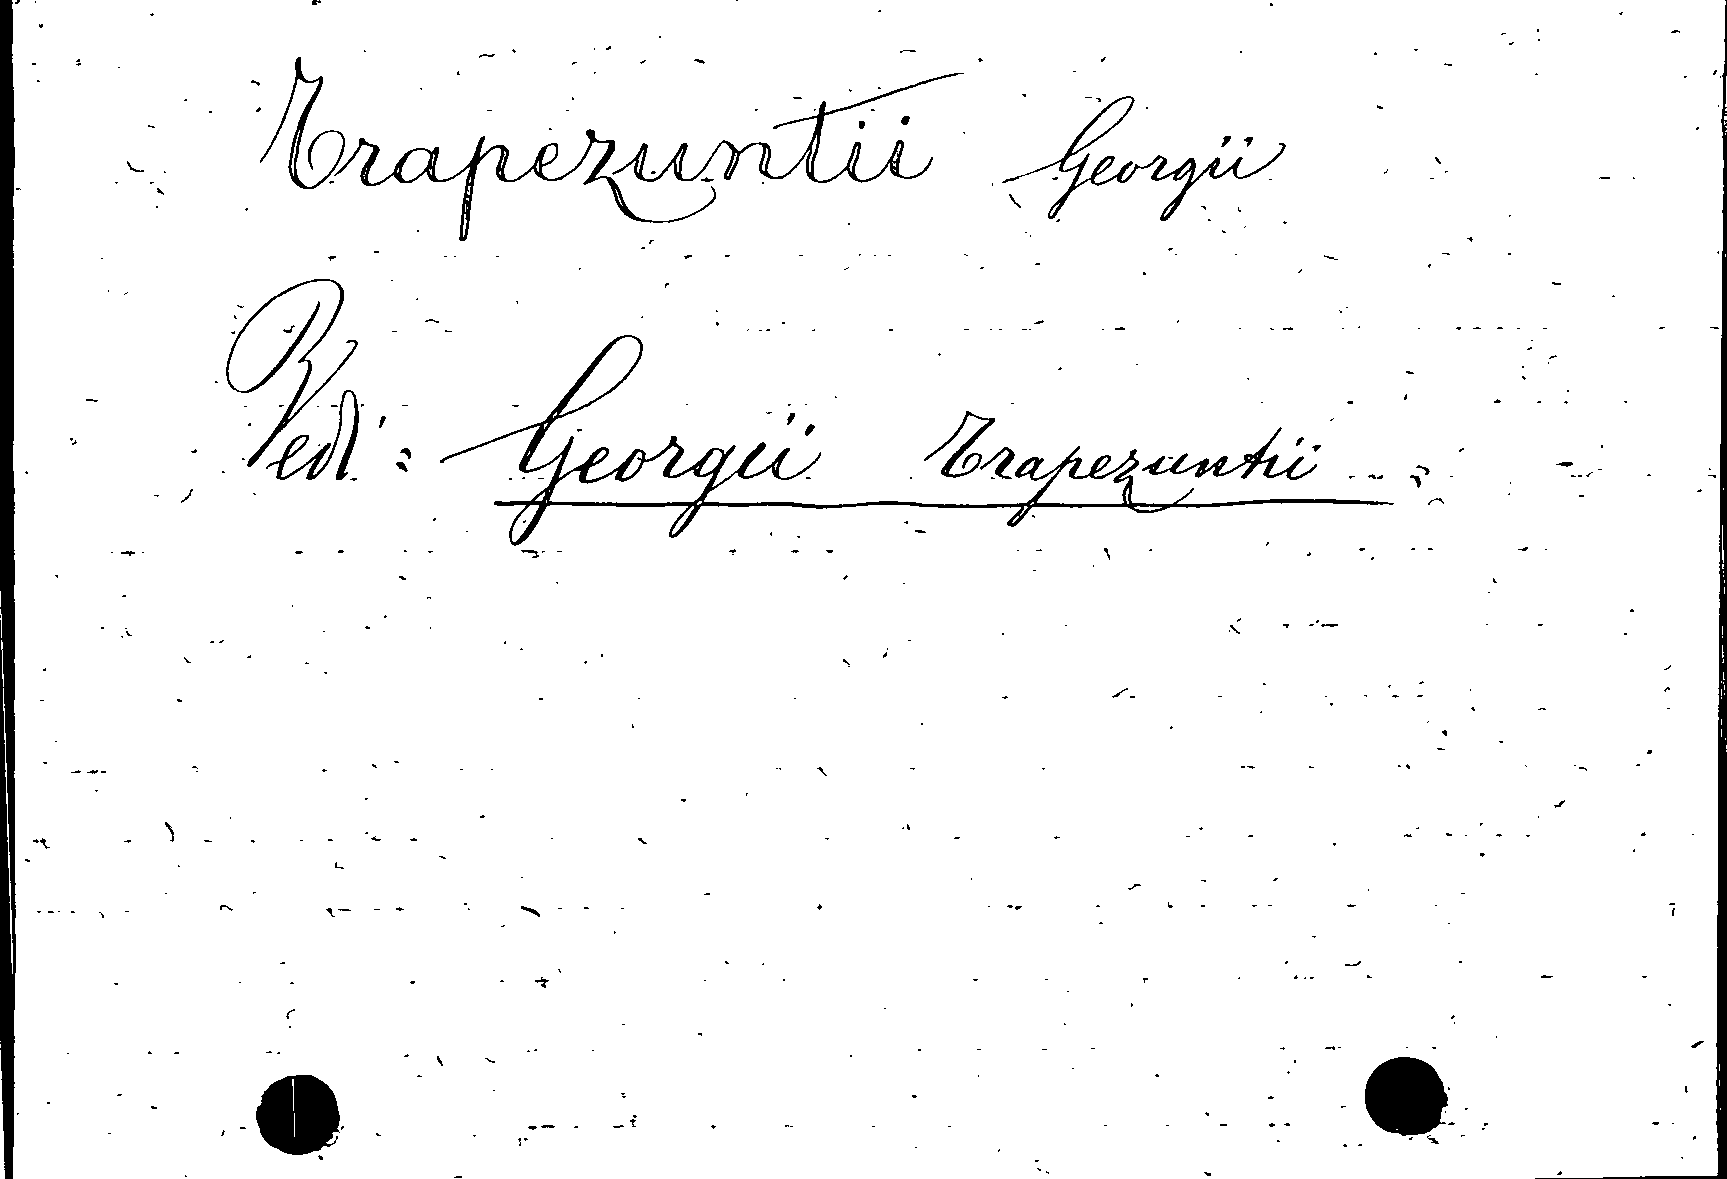 Trapezuntii Georgii
Vedi: Georgii Trapezuntii.